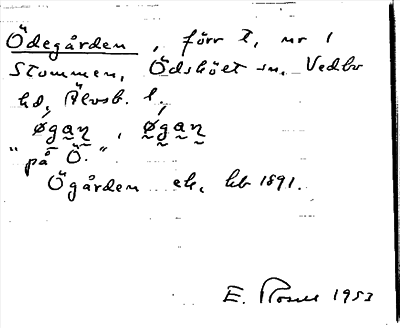 Ödegården, förr t, nr 1
Stommen, Ödsköet sn. Vedbo
hd, Älvsb. l.
øgan, øgan
"på Ö."
Ögården ek, hb 1891.
E. 1953